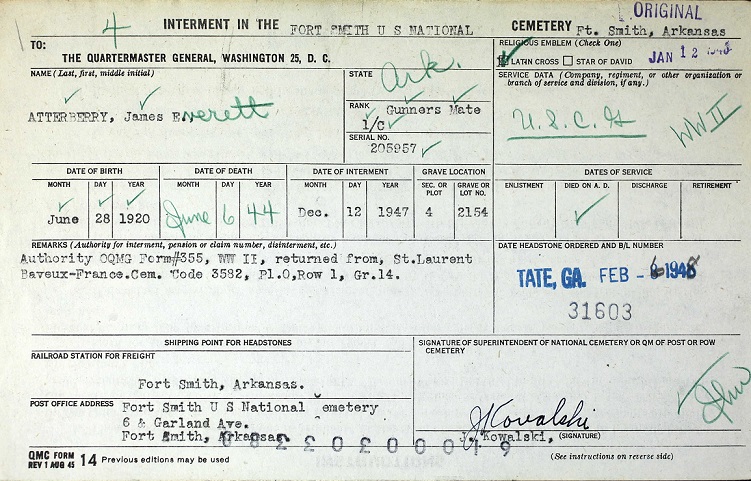 4 INTERMENT IN THE FORT SMITH U S NATIONAL CEMETERY Ft. Smith, Arkansas
ORIGINAL
TO:
THE QUARTERMASTER GENERAL, WASHINGTON 25, D. C.
RELIGIOUS EMBLEM (Check One)
LATIN CROSS STAR OF DAVID
JAN 12 1948
NAME (Last, first, middle initial)
ATTERBERRY, James E.verett
STATE
Ark.
RANK Gunners Mate
1/C
SERIAL NO.
205957
SERVICE DATA (Company, regiment, or other organization or
branch of service and division, if any.)
U.S.C.G
WW II
DATE OF BIRTH DATE OF DEATH DATE OF INTERMENT GRAVE LOCATION DATES OF SERVICE
MONTH DAY YEAR MONTH DAY YEAR MONTH DAY YEAR SEC. OR PLOT GRAVE OR LOT NO. ENLISTMENT DIED ON A. D. DISCHARGE RETIREMENT
June 28 1920 June 6 44 Dec. 12 1947 4 2154
REMARKS (Authority for interment, pension or claim number, disinterment, etc.)
Authority OQMG Form#355, WW II, returned from, St.Laurent
Baveux-France.Cem. Code 3582, Pl.O,Row 1, Gr.14.
DATE HEADSTONE ORDERED AND B/L NUMBER
TATE, GA. FEB - 6 1948
31603
SHIPPING POINT FOR HEADSTONES
RAILROAD STATION FOR FREIGHT
Fort Smith, Arkansas.
POST OFFICE ADDRESS Fort Smith U S National emetery
6 & Garland Ave.
Fort Smith, Arkansas.
SIGNATURE OF SUPERINTENDENT OF NATIONAL CEMETERY OR QM OF POST OR POW
CEMETERY
J Kowalski
J. Kowalski, (SIGNATURE)
(See instructions on reverse side)
QMC FORM
REV 1 AUG 45 14 Previous editions may be used